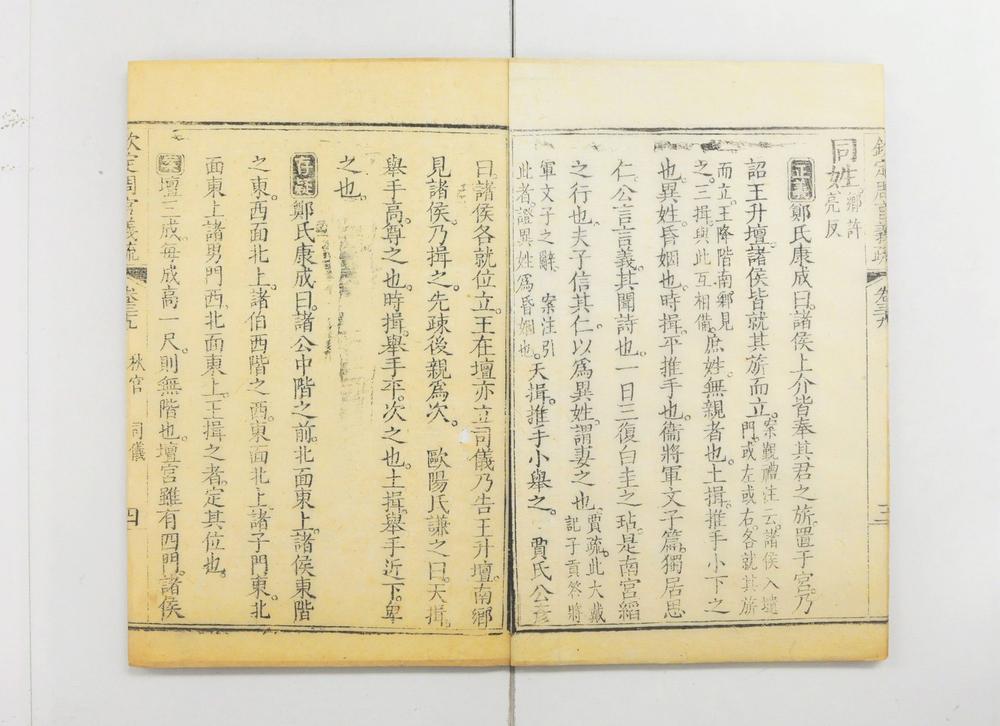 欽定周官義疏 卷三十九 三
同姓鄉許亮反
正義鄭氏康成曰諸侯上介皆奉其君之旂置于宮乃
詔王升壇諸侯皆就其旂而立案覲禮注云諸侯入壝門或左或右各就其旂
而立王降階南鄉見之三揖與此互相備庶姓無親者也土揖推手小下之
也異姓昏姻也時揖平推手也衞將軍文子篇獨居思
仁公言言義其聞詩也一日三復白圭之玷是南宮縚
之行也夫子信其仁以爲異姓謂妻之也賈疏此大戴記子貢答將
軍文子之辭 案注引此者證異姓爲昏姻也天揖推手小舉之 賈氏公彥
曰諸侯各就位立王在壇亦立司儀乃告王升壇南鄉
見諸侯乃揖之先疎後親爲次 歐陽氏謙之曰天揖
舉手高尊之也時揖舉手平次之也土揖舉手近下卑
之也
存註鄭氏康成曰諸公中階之前北面東上諸侯東階
之東西面北上諸伯西階之西東面北上諸子門東北
面東上諸男門西北面東上王揖之者定其位也
案壇三成每成高一尺則無階也壇宮雖有四門諸侯
欽定周官義疏 卷三十九 秋官 司儀 四